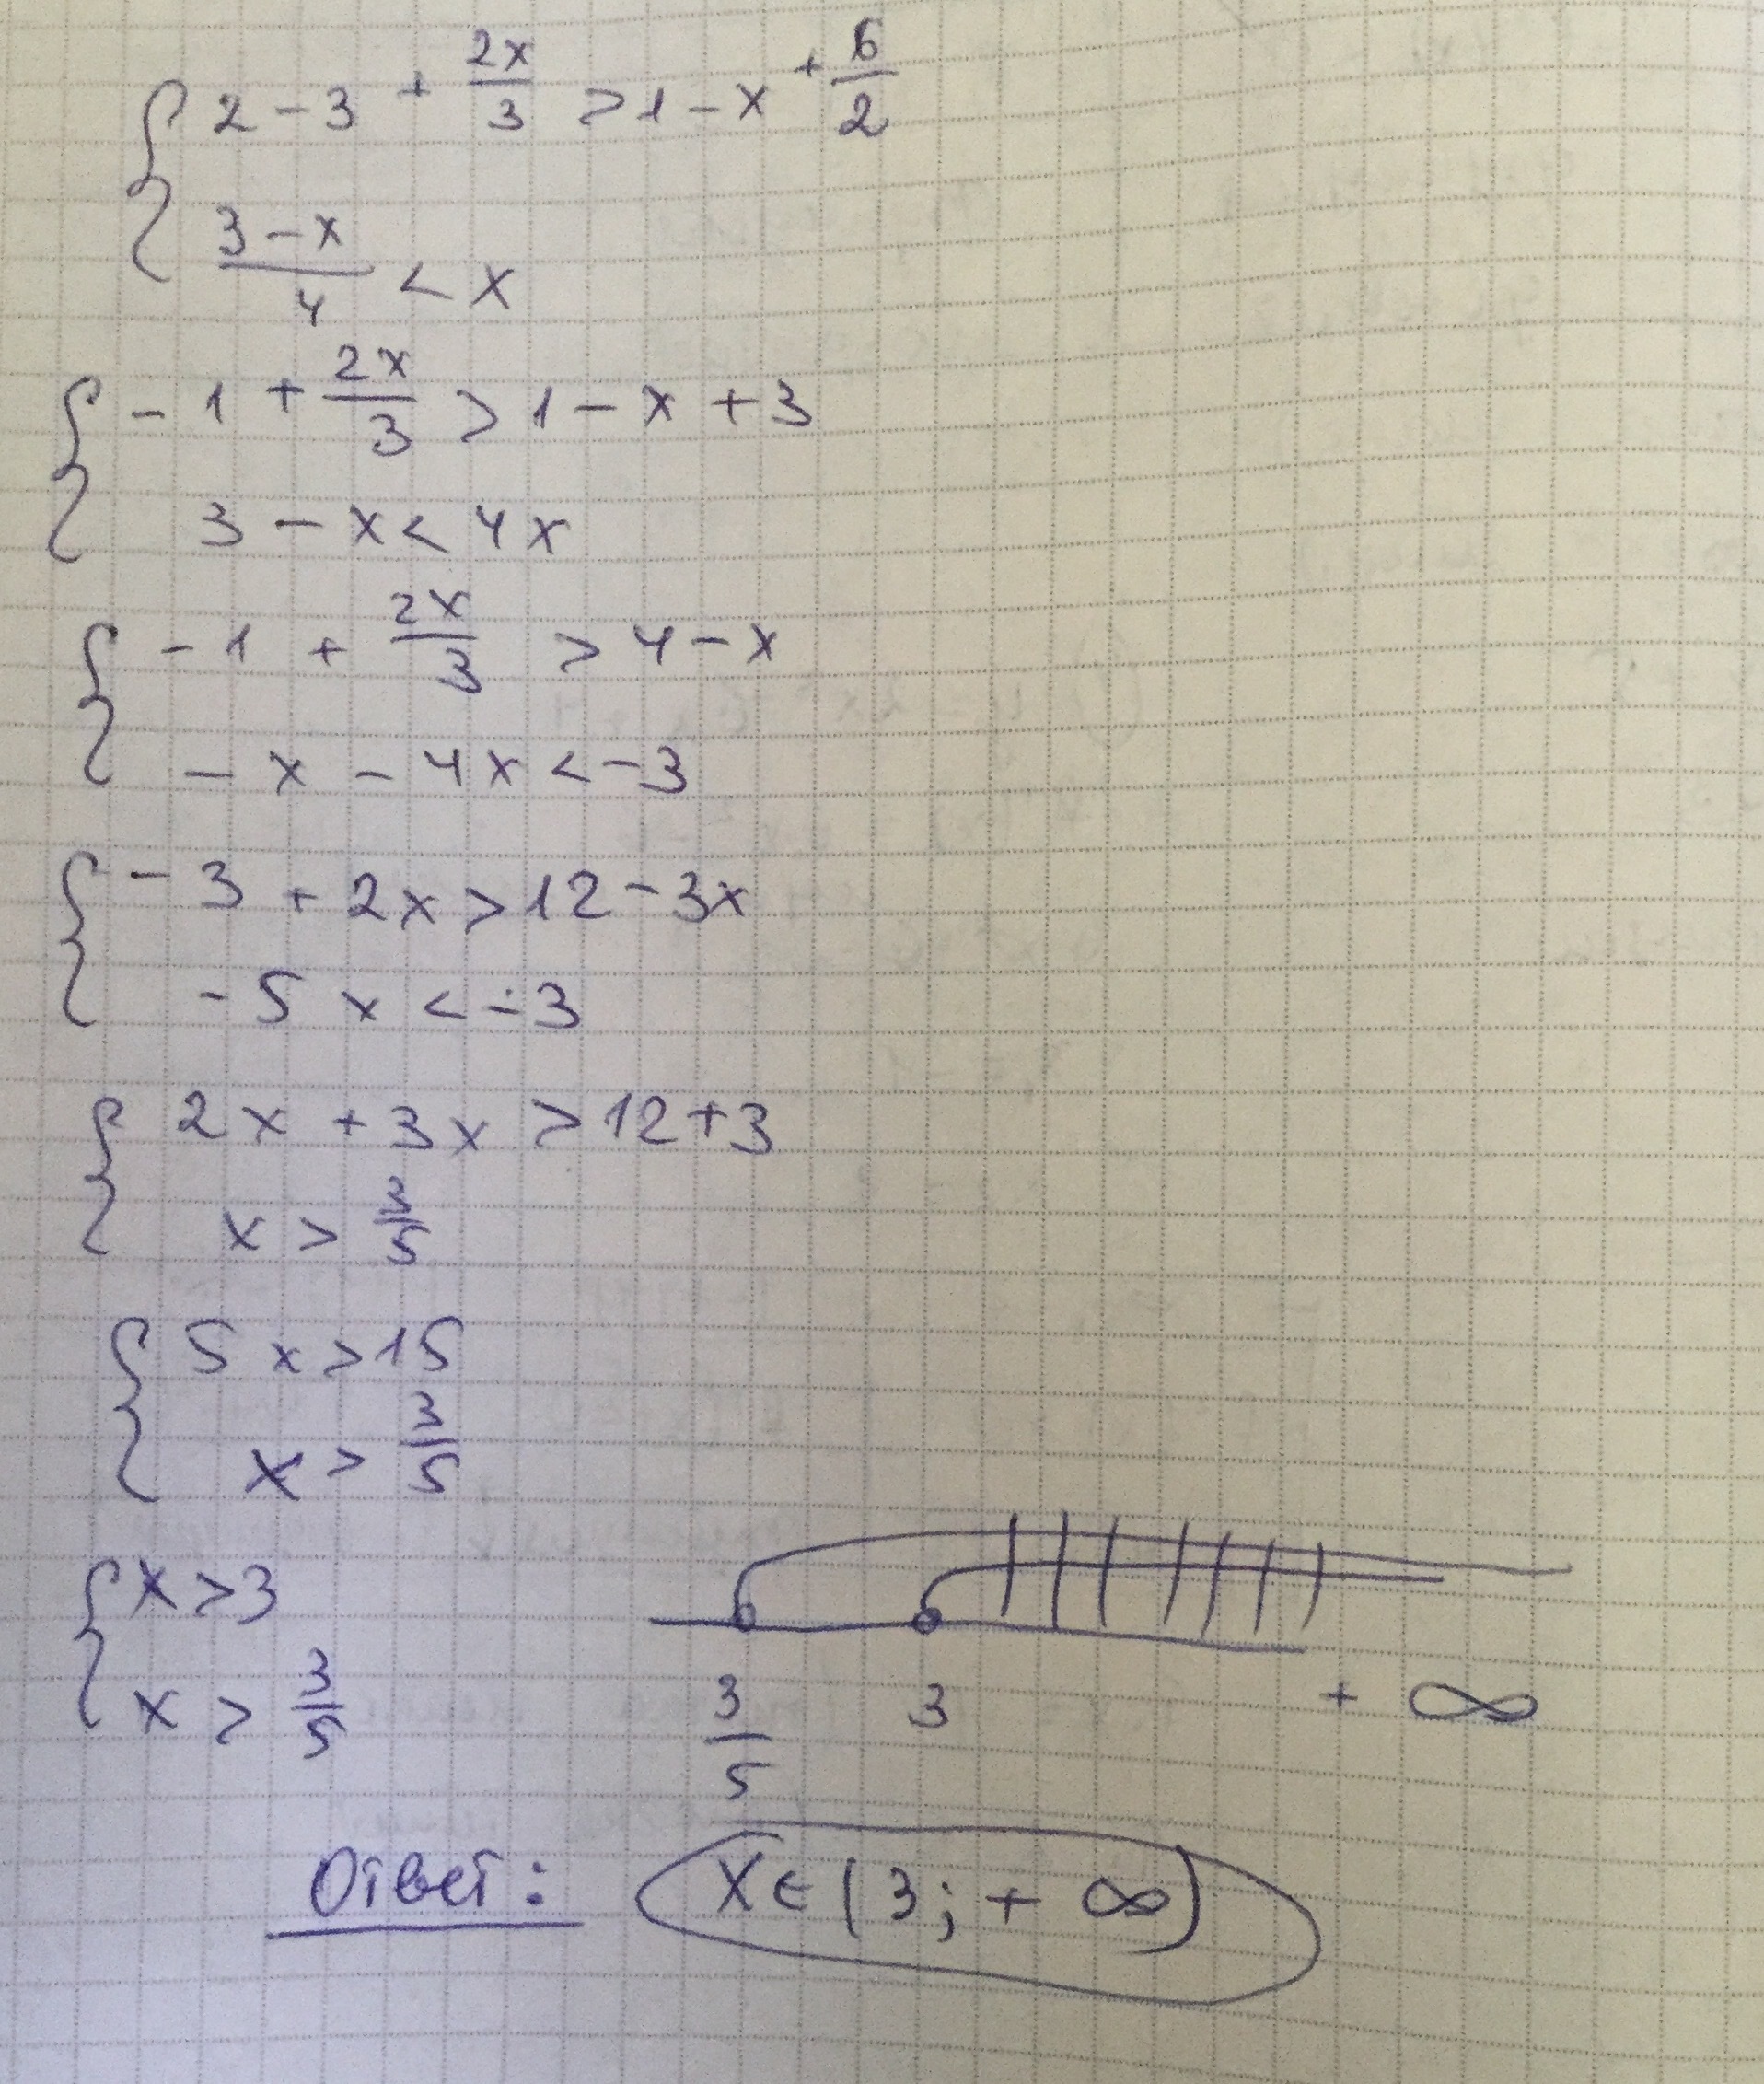 { 2 - 3 + 2x/3 > 1 - x + 6/2
(3 - x)/4 < x
{ - 1 + 2x/3 > 1 - x + 3
3 - x < 4x
{ - 1 + 2x/3 > 4 - x
- x - 4x < -3
{ - 3 + 2x > 12 - 3x
- 5x < -3
{ 2x + 3x > 12 + 3
x > 3/5
{ 5x > 15
x > 3/5
{ x > 3
x > 3/5
3/5 3 + ∞
Ответ: x ∈ (3; + ∞)